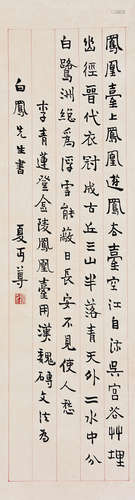 鳳凰臺上鳳凰遊鳳去臺空江自流吳宮花艸埋
幽徑晉代衣冠成古丘三山半落青天外二水中分
白鷺洲總爲浮雲能蔽日長安不見使人愁
李青蓮登金陵鳳凰臺用漢魏磚文法爲
白鳳先生書 夏丏尊